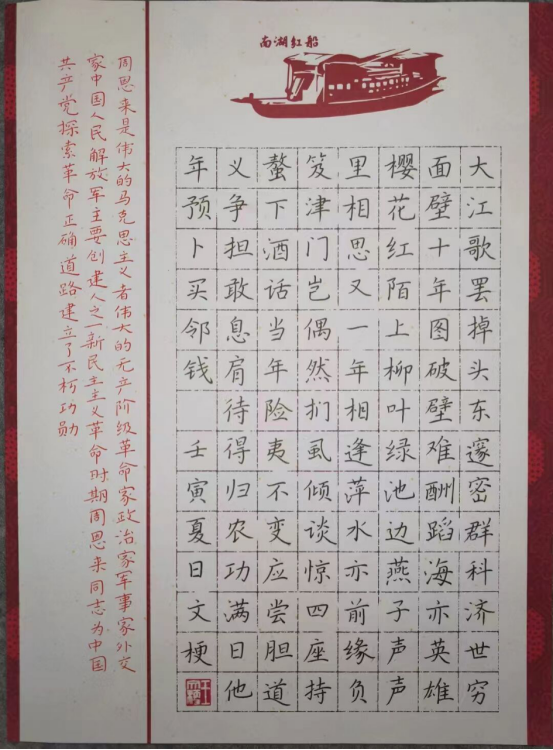 南湖红船
大江歌罢掉头东邃密群科济世穷
面壁十年图破壁难酬蹈海亦英雄
樱花红陌上柳叶绿池边燕子声声
里相思又一年相逢萍水亦前缘负
笈津门岂偶然扪虱倾谈惊四座持
螯下酒话当年险夷不变应尝胆道
义争担敢息肩待得归农功满日他
年预卜买邻钱 壬寅夏日文梗
周恩来是伟大的马克思主义者伟大的无产阶级革命家政治家军事家外交
家中国人民解放军主要创建人之一新民主主义革命时期周恩来同志为中国
共产党探索革命正确道路建立了不朽功勋